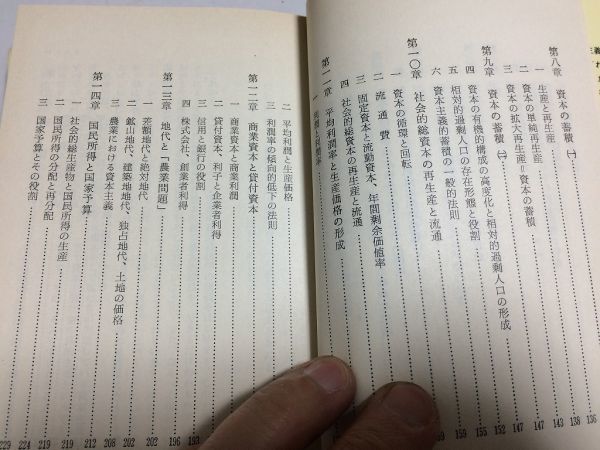 第八章 資本の蓄積(一) 136
一 生産と再生産 136
二 資本の単純再生産 138
三 資本の拡大再生産=資本の蓄積 143
第九章 資本の蓄積(二) 147
四 資本の有機的構成の高度化と相対的過剰人口の形成
五 相対的過剰人口の存在形態と役割
六 資本主義的蓄積の一般的法則
第一〇章 社会的総資本の再生産と流通
一 資本の循環と回転
二 流通費
三 固定資本と流動資本、年間剰余価値率
四 社会的総資本の再生産と流通
第一一章 平均利潤率と生産価格の形成
一
二 平均利潤と生産価格
三 利潤率の傾向的低下の法則
第一二章 商業資本と貸付資本
一 商業資本と商業利潤
二 貸付資本、利子と企業者利得
三 信用と銀行の役割 193
四 株式会社、創業者利得 196
第一三章 地代と「農業問題」 202
一 差額地代と絶対地代 202
二 鉱山地代、建築地地代、独占地代、土地の価格 208
三 農業における資本主義 212
第一四章 国民所得と国家予算 219
一 社会的総生産物と国民所得の生産 219
二 国民所得の分配と再分配 224
三 国家予算とその役割 229